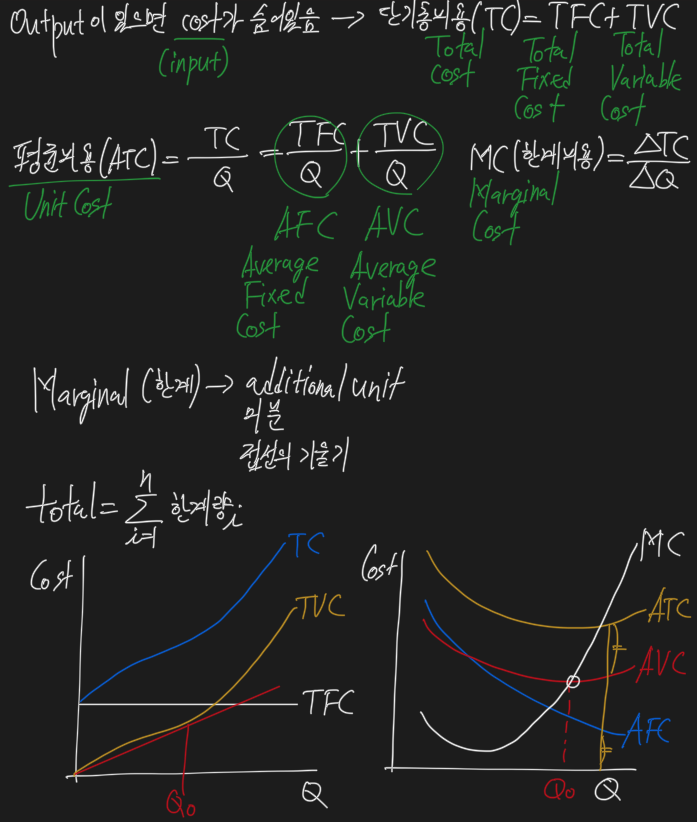 Output이 있으면 cost가 숨어있음 → 단기총비용(TC) = TFC + TVC
(input)
Total Cost
Total Fixed Cost
Total Variable Cost
평균비용(ATC) = TC/Q = TFC/Q + TVC/Q
Unit Cost
AFC
Average
Fixed
Cost
AVC
Average
Variable
Cost
MC(한계비용) = ΔTC/ΔQ
Marginal
Cost
Marginal (한계) → additional unit
미분
접선의 기울기
total = n∑i=1 한계량i
Cost
TC
TVC
TFC
Q₀
Q
Cost
MC
ATC
AVC
AFC
Q₀
Q